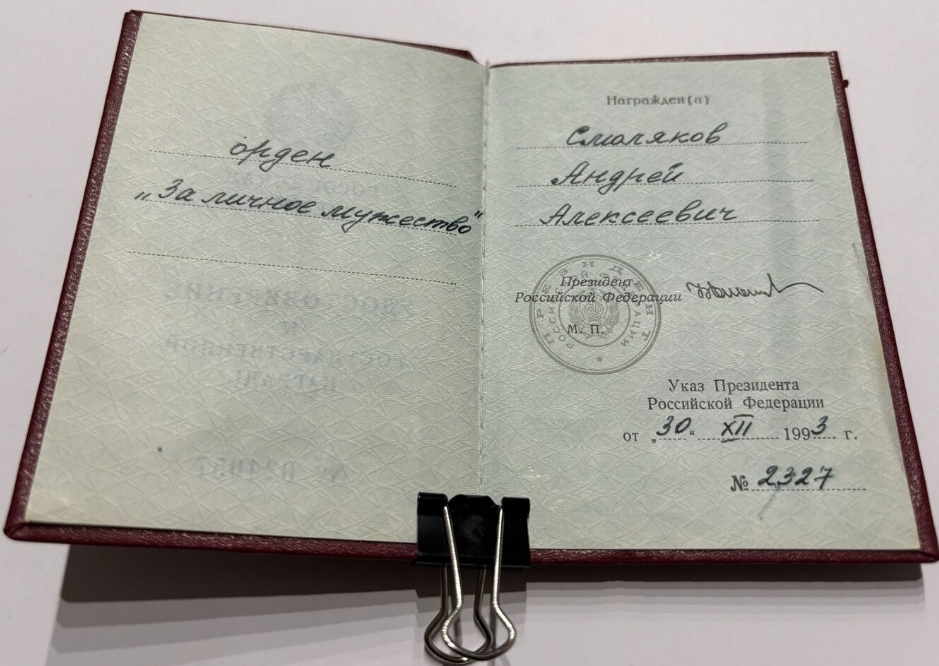 орден
„За личное мужество"
Награжден(а)
Смоляков
Андрей
Алексеевич
Президент
Российской Федерации
М. П.
ПРЕЗИДЕНТ
РОССИЙСКОЙ ФЕДЕРАЦИИ
Указ Президента
Российской Федерации
от „30" XII 1993 г.
№ 2327